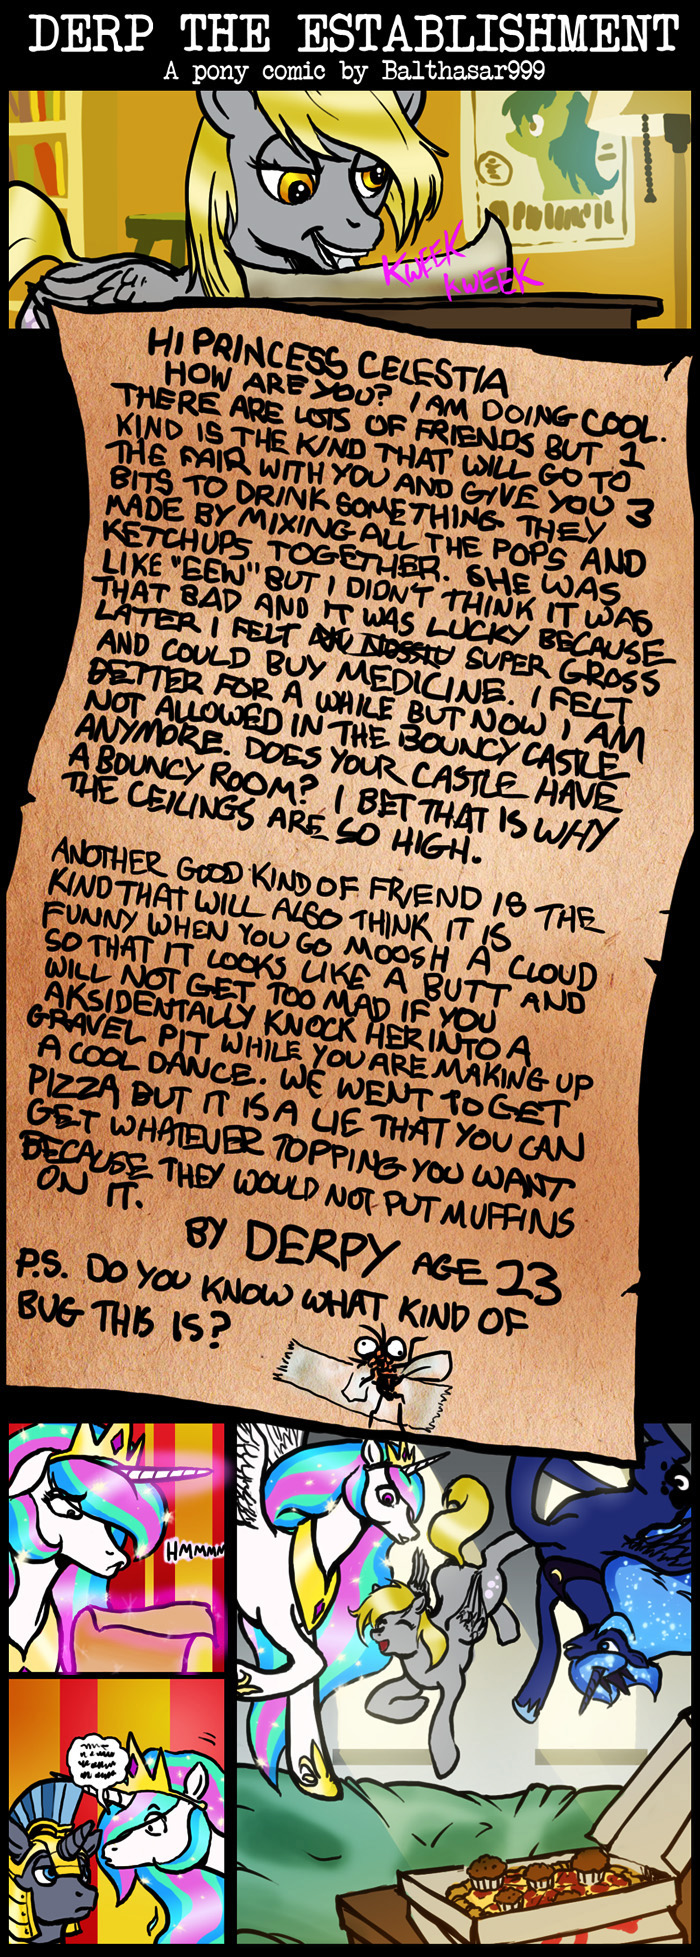 DERP THE ESTABLISHMENT
A pony comic by Balthasar999
KWEEK
KWEEK
HI PRINCESS CELESTIA
HOW ARE YOU? I AM DOING COOL.
THERE ARE LOTS OF FRIENDS BUT 1
KIND IS THE KIND THAT WILL GO TO
THE FAIR WITH YOU AND GIVE YOU 3
BITS TO DRINK SOMETHING THEY
MADE BY MIXING ALL THE POPS AND
KETCHUPS TOGETHER. SHE WAS
LIKE "EEW" BUT I DIDN'T THINK IT WAS
THAT BAD AND IT WAS LUCKY BECAUSE
LATER I FELT SUPER GROSS
AND COULD BUY MEDICINE. I FELT
BETTER FOR A WHILE BUT NOW I AM
NOT ALLOWED IN THE BOUNCY CASTLE
ANYMORE. DOES YOUR CASTLE HAVE
A BOUNCY ROOM? I BET THAT IS WHY
THE CEILINGS ARE SO HIGH.
ANOTHER GOOD KIND OF FRIEND IS THE
KIND THAT WILL ALSO THINK IT IS
FUNNY WHEN YOU GO MOOSH A CLOUD
SO THAT IT LOOKS LIKE A BUTT AND
WILL NOT GET TOO MAD IF YOU
AKSIDENTALLY KNOCK HER INTO A
GRAVEL PIT WHILE YOU ARE MAKING UP
A COOL DANCE. WE WENT TO GET
PIZZA BUT IT IS A LIE THAT YOU CAN
GET WHATEVER TOPPING YOU WANT
BECAUSE THEY WOULD NOT PUT MUFFINS
ON IT.
BY DERPY AGE 23
P.S. DO YOU KNOW WHAT KIND OF
BUG THIS IS?
HMMMM